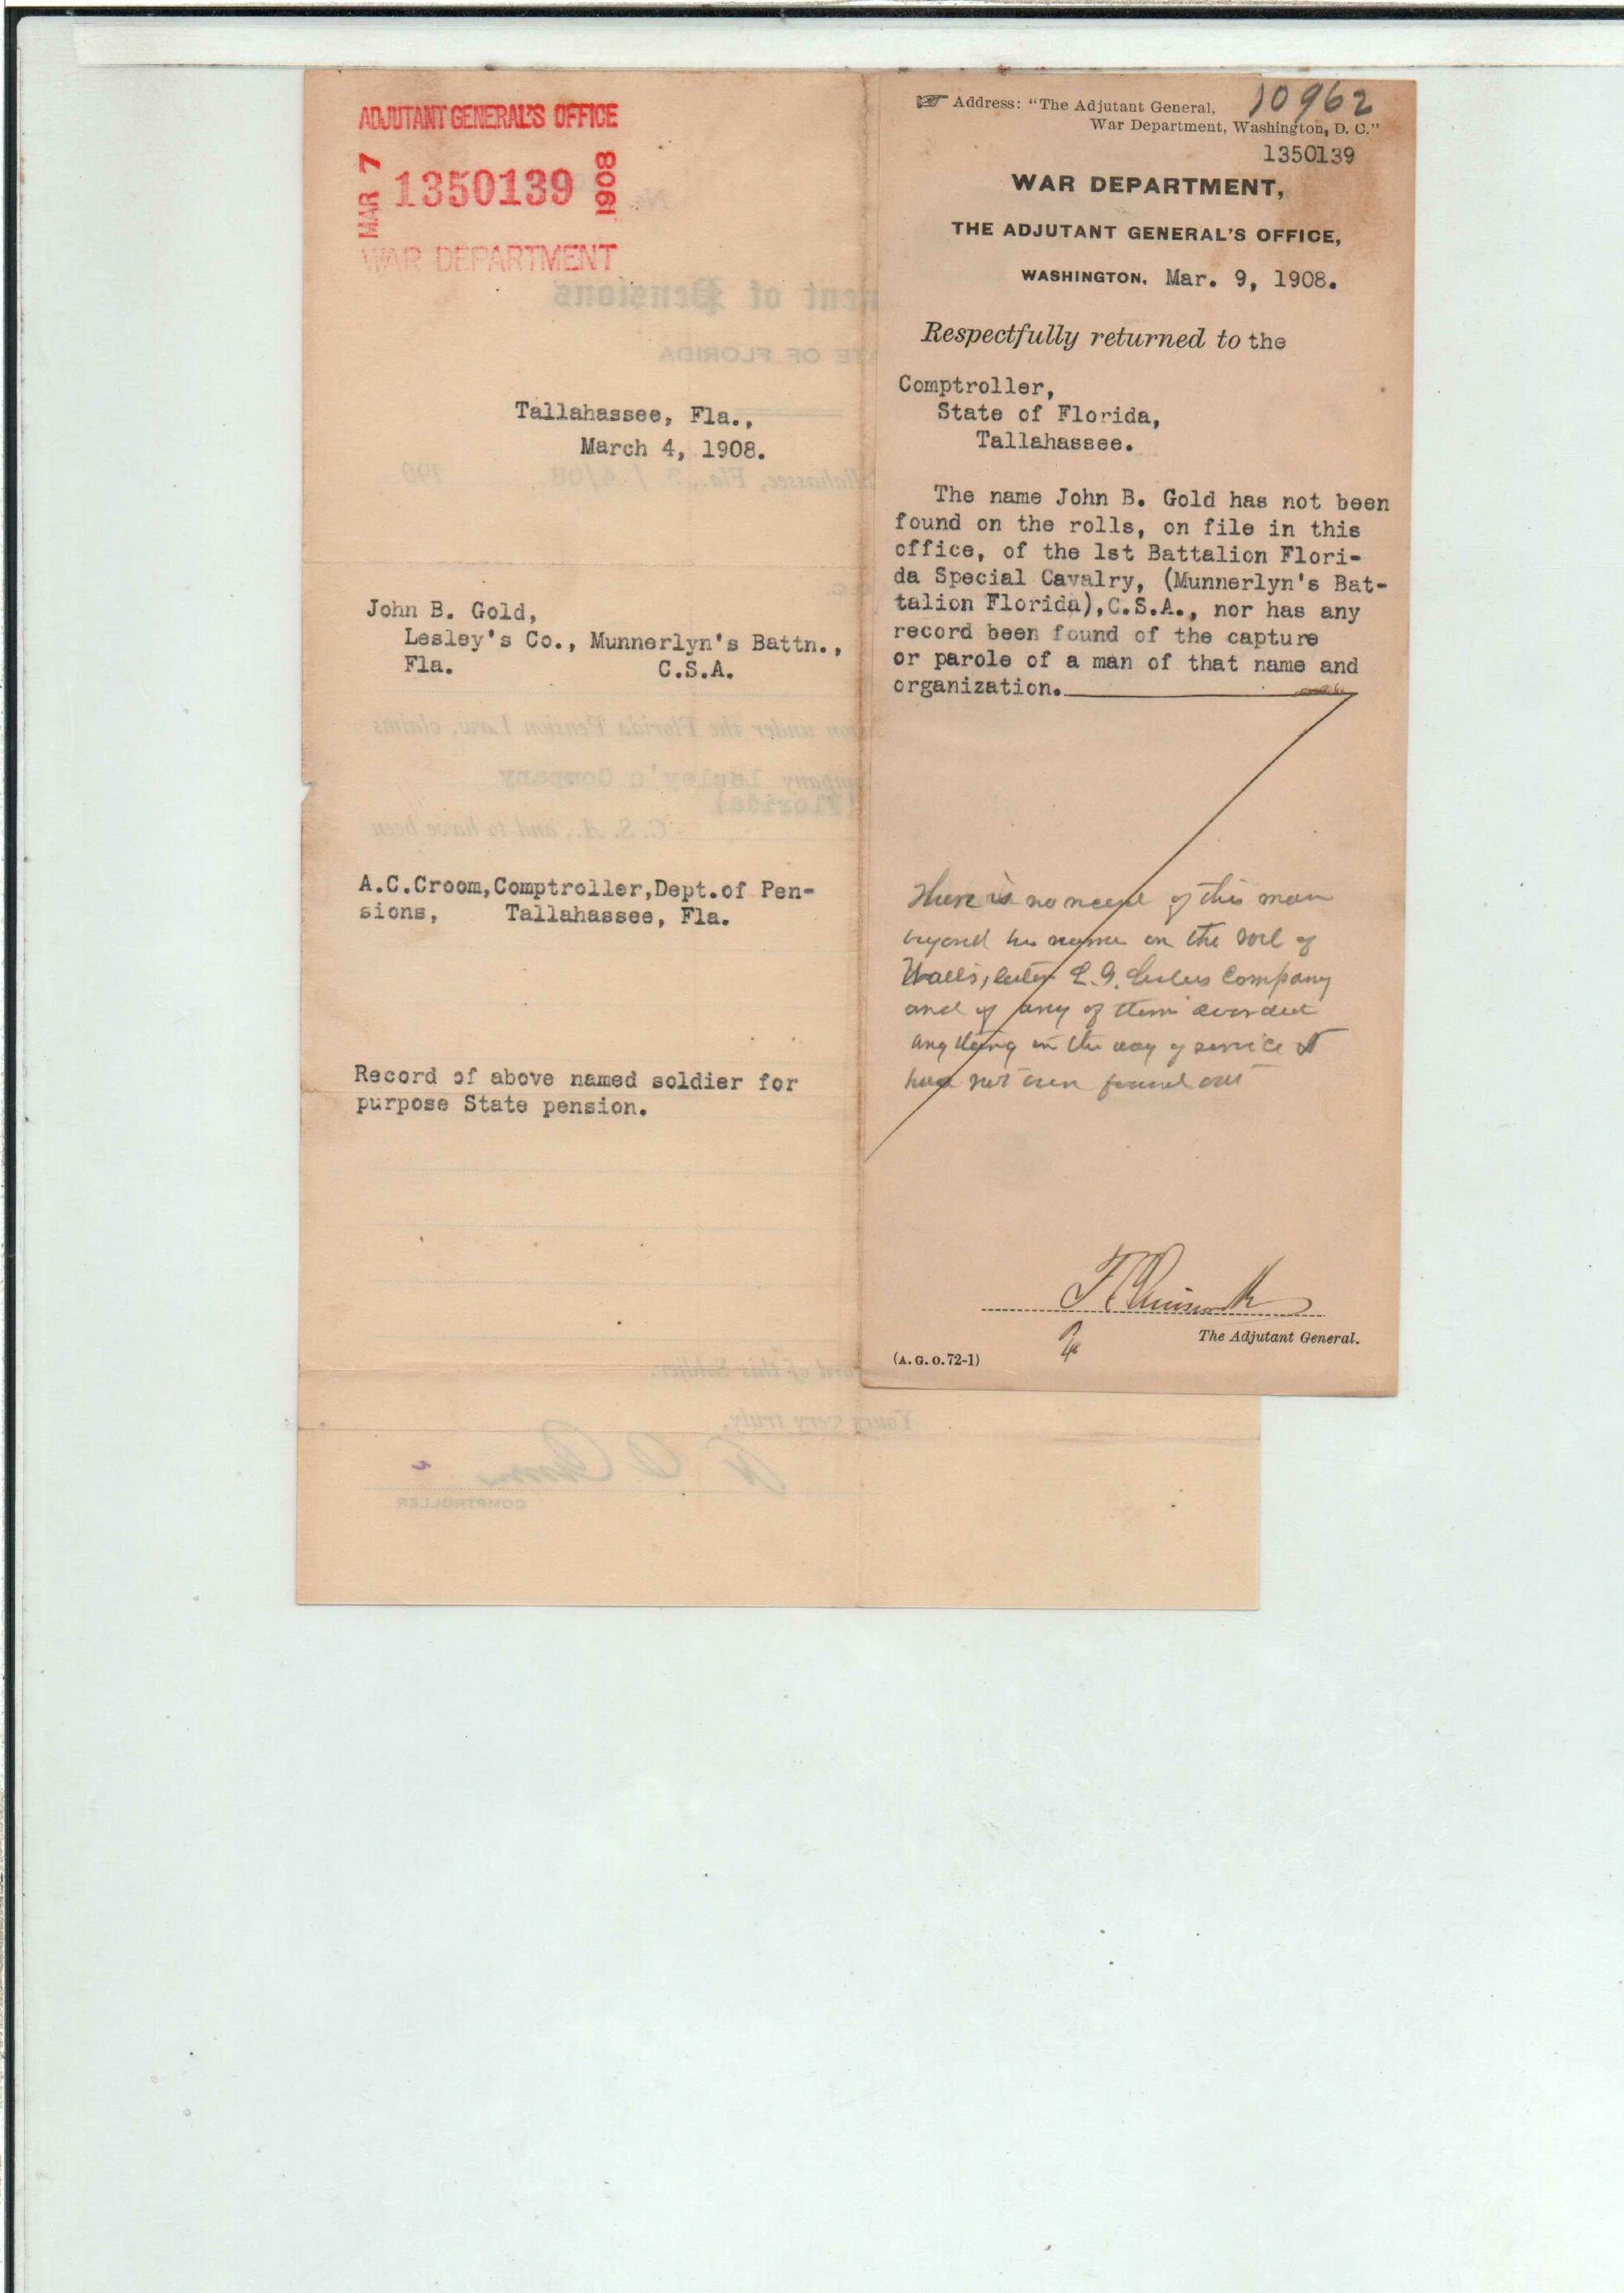 ADJUTANT GENERAL'S OFFICE
MAR 7 1350139 1908
WAR DEPARTMENT
Tallahassee, Fla.,
March 4, 1908.
John B. Gold,
Lesley's Co., Munnerlyn's Battn.,
Fla. C.S.A.
A.C.Croom,Comptroller,Dept.of Pen-
sions, Tallahassee, Fla.
Record of above named soldier for
purpose State pension.
ment of Pensions
OF FLORIDA
Fla.,
190
under the Florida Pension Law, claims
Lesley's Company
(Florida)
C. S. A., and to have been
of this Soldier.
Yours very truly,
A C Croom
COMPTROLLER
10962
☞ Address: "The Adjutant General,
War Department, Washington, D. C."
1350139
WAR DEPARTMENT,
THE ADJUTANT GENERAL'S OFFICE,
WASHINGTON, Mar. 9, 1908.
Respectfully returned to the
Comptroller,
State of Florida,
Tallahassee.
The name John B. Gold has not been
found on the rolls, on file in this
office, of the 1st Battalion Flori-
da Special Cavalry, (Munnerlyn's Bat-
talion Florida),C.S.A., nor has any
record been found of the capture
or parole of a man of that name and
organization.
There is no record of this man
beyond his name on the roll of
Company
and if any of them
any thing in the way of service
not been found out
F C Ainsworth
The Adjutant General.
(A. G. O. 72-1)